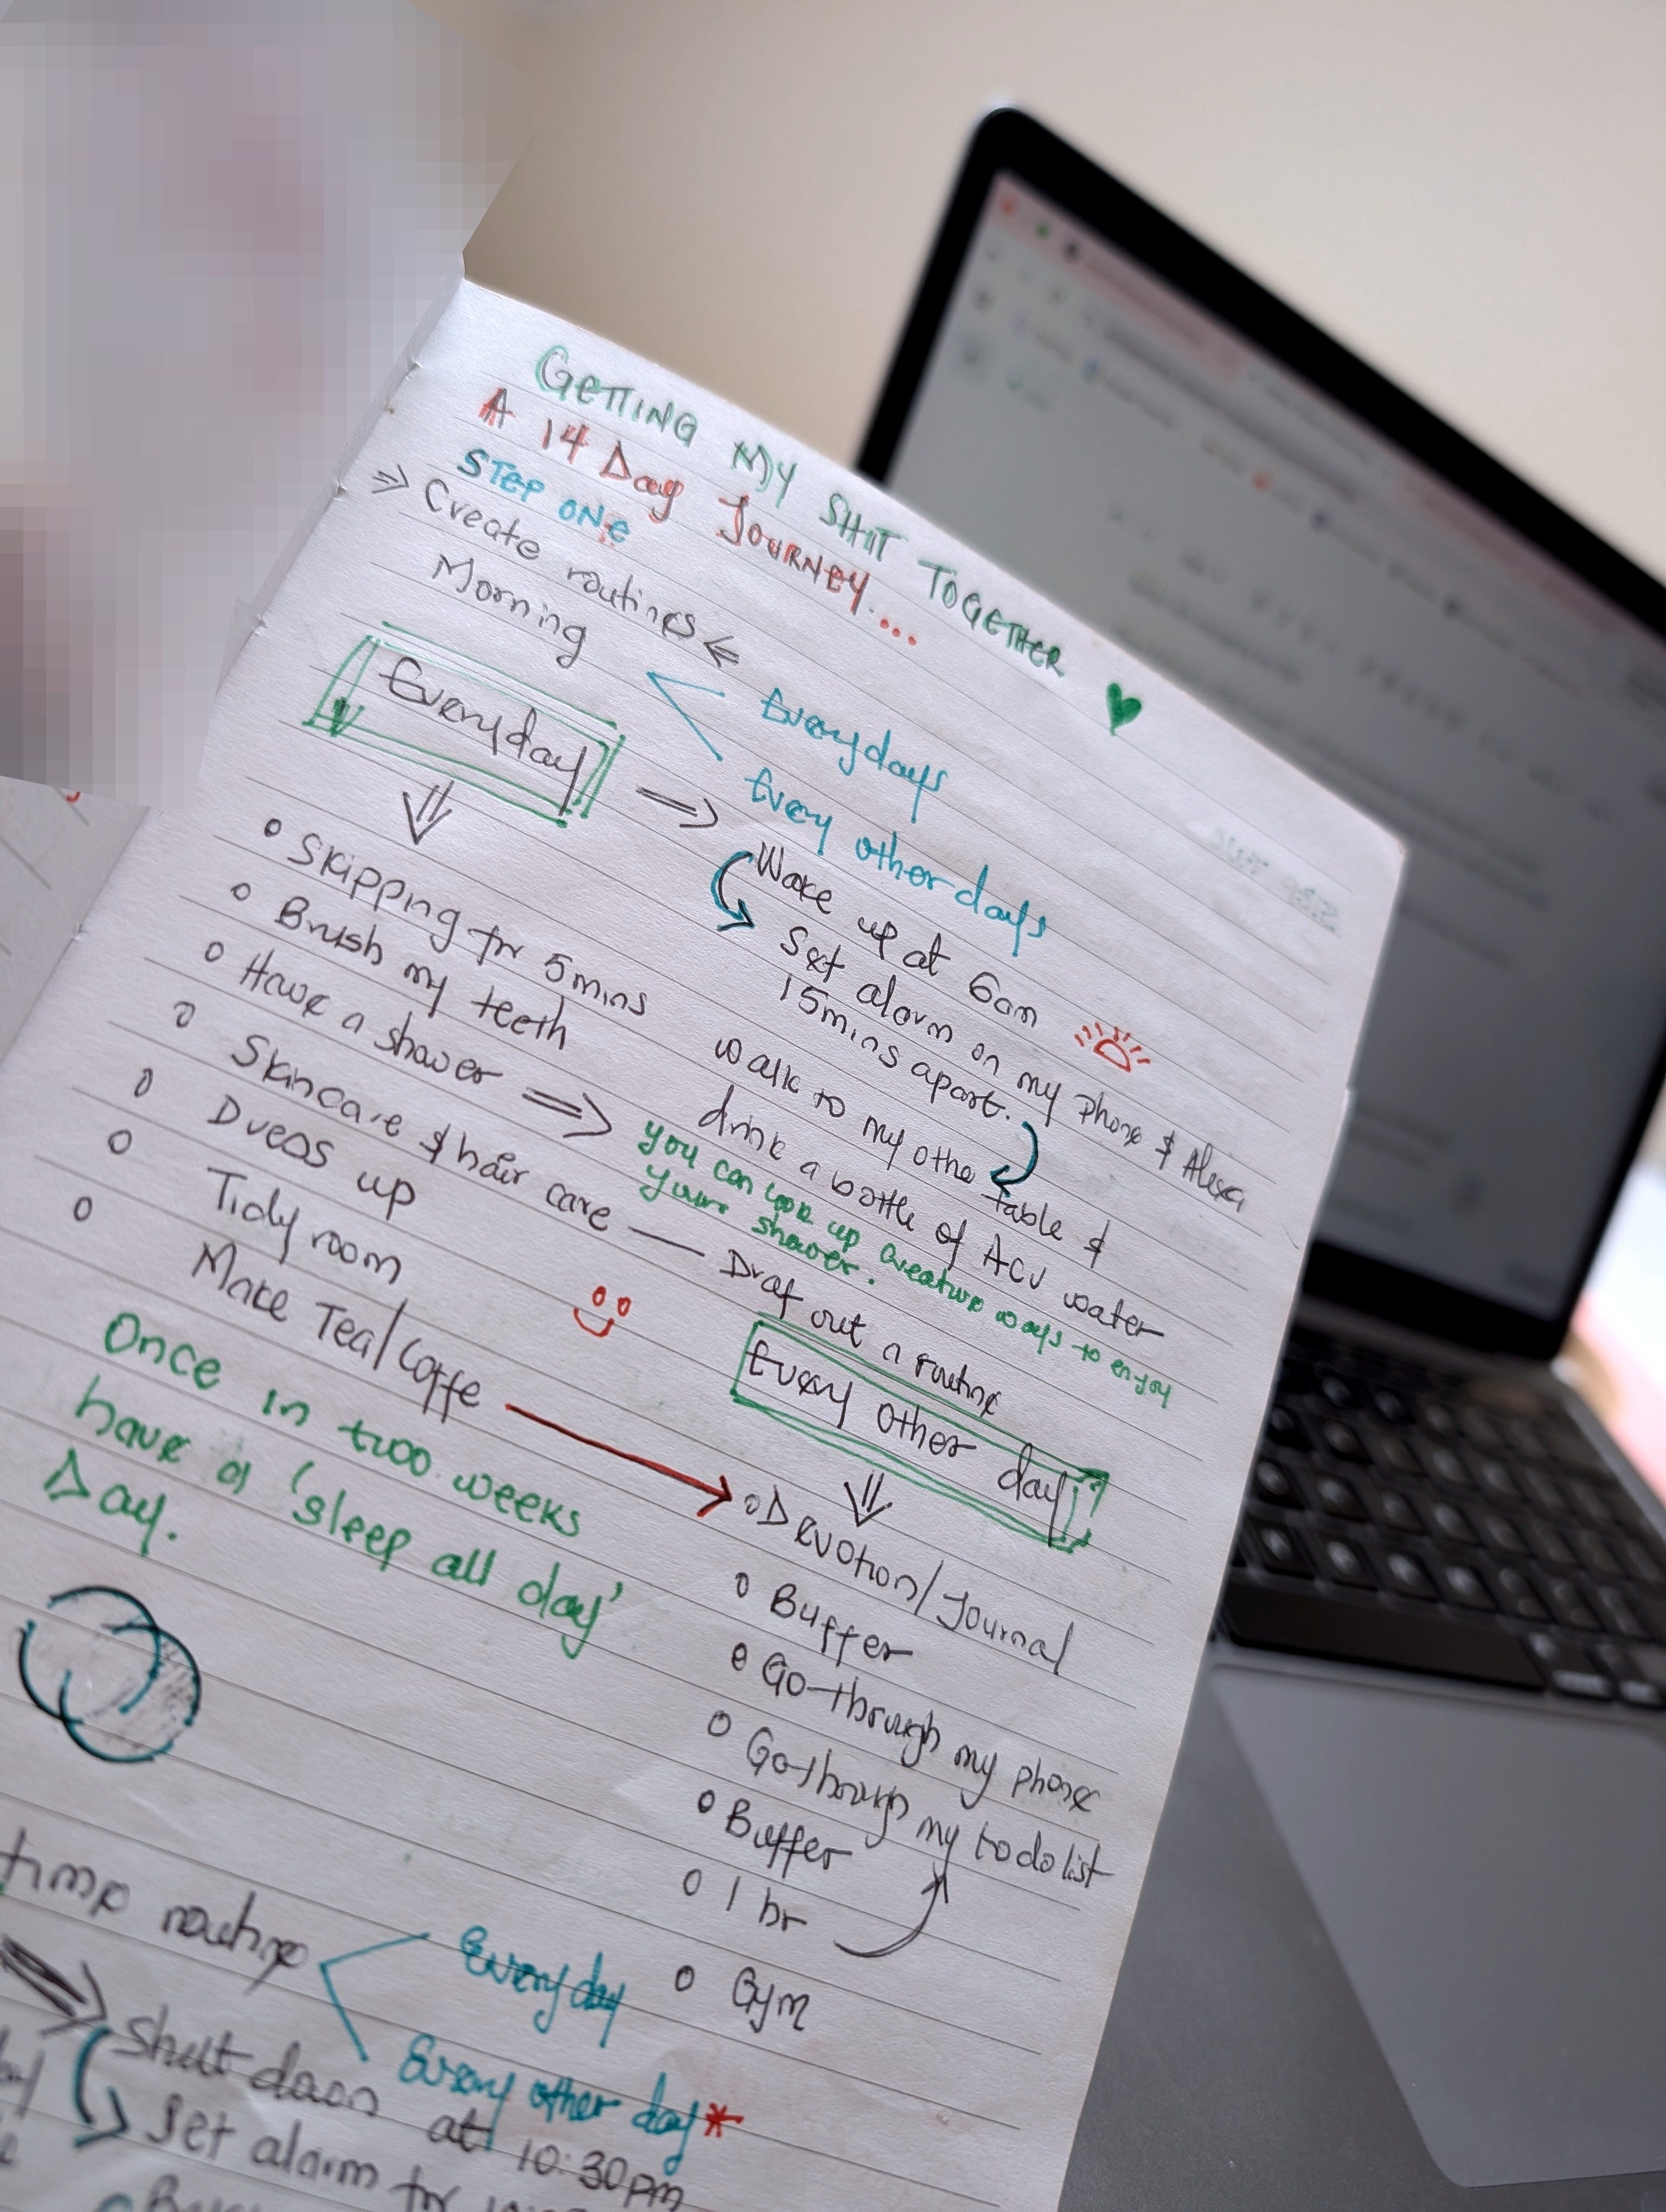 GETTING MY SHIT TOGETHER
A 14 Day JOURNEY...
STEP ONE
⇒ Create routines ⇐
Morning
Everydays
Every other days
Everyday
⇒ Wake up at 6am
Set alarm on my phone & Alexa
15mins apart.
walk to my othe table &
drink a bottle of ACV water
Skipping for 5mins
Brush my teeth
Have a shower ⇒ you can look up creative ways to enjoy
your shower.
Skincare & hair care — Draf out a routine
Dress up
Tidy room
Make Tea/Coffe
Once in two weeks
have a 'sleep all day'
Day.
Every other day
Devotion/Journal
Buffer
Go through my phone
Go through my to do list
Buffer
1 hr
Gym
time routine
Everyday
Every other day*
Shut down at 10:30pm
Set alarm for